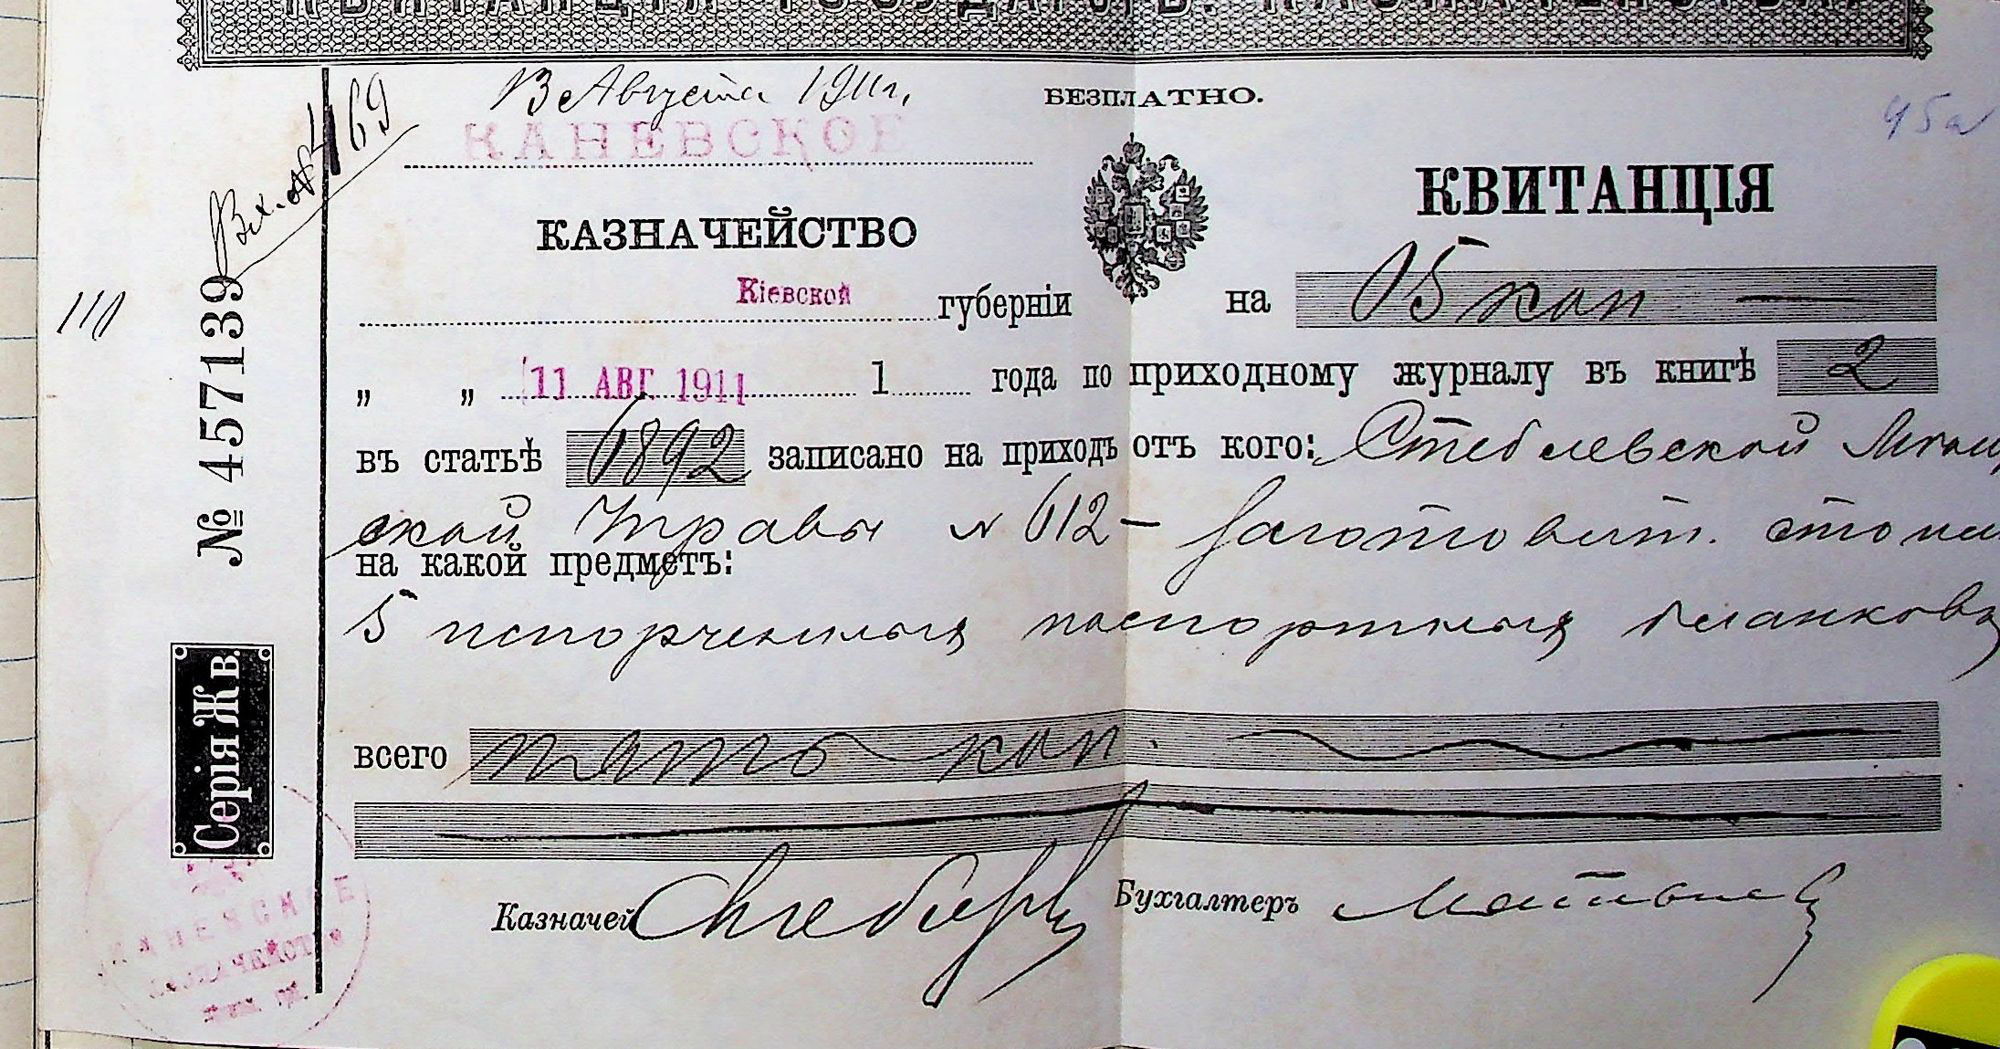 КВИТАНЦІЯ ГОСУДАРСТВ. КАЗНАЧЕЙСТВА.
13 Августа 1911 г.
БЕЗПЛАТНО.
45а
Вх. № 469
КАНЕВСКОЕ
КАЗНАЧЕЙСТВО
КВИТАНЦІЯ
Кіевской губерніи
на 5 коп
111
№ 457139
„ „ 11 АВГ. 1911 1 года по приходному журналу въ книгѣ 2
въ статьѣ 6892 записано на приходъ отъ кого: Стеблевской Мѣщан
ской Управы № 612 – Заготовит. стоим
на какой предметъ:
5 испорченныхъ паспортныхъ бланковъ
Серія Жв.
всего пять коп.
Казначей
Бухгалтеръ
КАНЕВСКОЕ
КАЗНАЧЕЙСТ